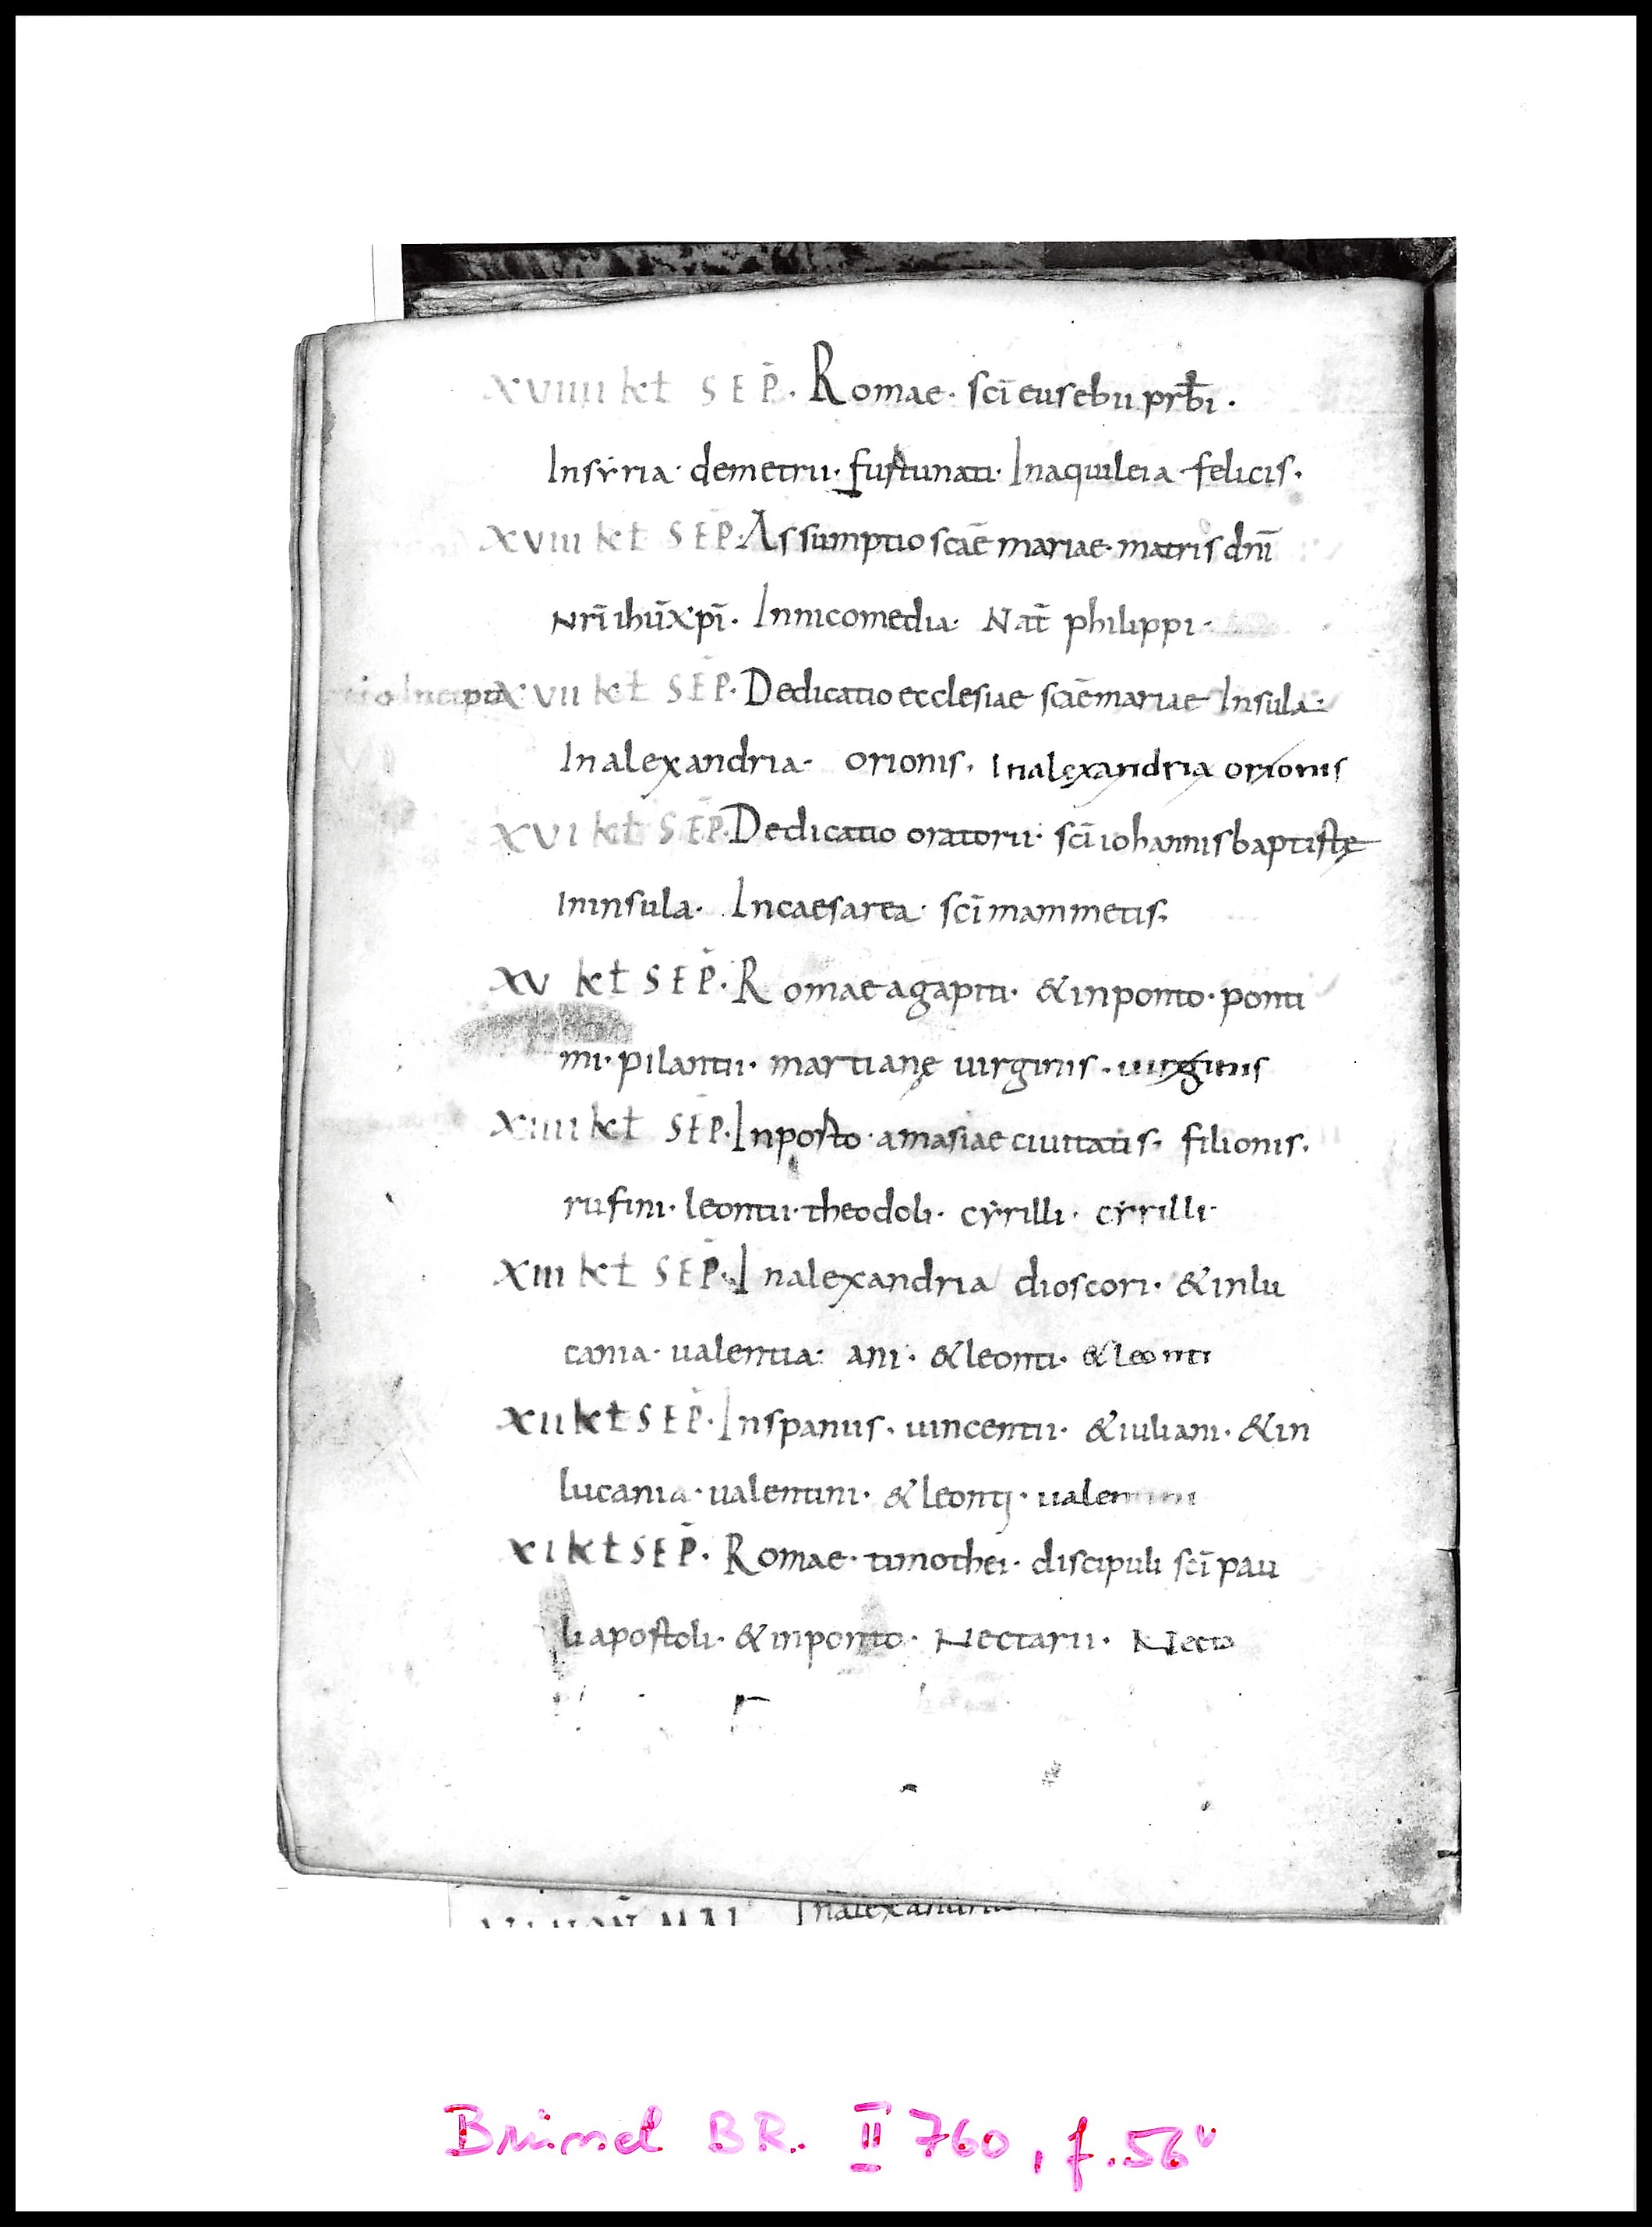 XVIIII kł SEP̄. Romae · scī eusebii prb̄i ·
In syria · demetrii · furtunati · In aquileia · felicis ·
XVIII kł SEP̄. Assumptio scāe mariae · matris dn̄i
Nr̄i ihū xp̄i · In nicomedia · Nat̄ philippi ·
XVII kł SEP̄. Dedicatio ecclesiae scāe mariae Insula :
In alexandria · orionis · In alexandria orionis
XVI kł SEP̄. Dedicatio oratorii · scī iohannis baptistę
In insula · In caesarea · scī mammetis ·
XV kł SEP̄. Romae agapiti · & in ponto · ponti
mi · pilantii · martianę uirginis · uirginis
XIIII kł SEP̄. In porto · amasiae ciuitatis · filionis ·
rufini · leontii · theodoli · cyrilli · cyrilli ·
XIII kł SEP̄. In alexandria dioscori · & in lu
cania · ualentia : ani · & leonti · & leonti
XII kł SEP̄. In spaniis · uincentii · & iuliani · & in
lucania · ualentini · & leontij · ualentini
XI kł SEP̄. Romae · timothei · discipuli scī pau
li apostoli · & in ponto · Nectarii · Necta
Brüssel BR. II 760, f. 56v